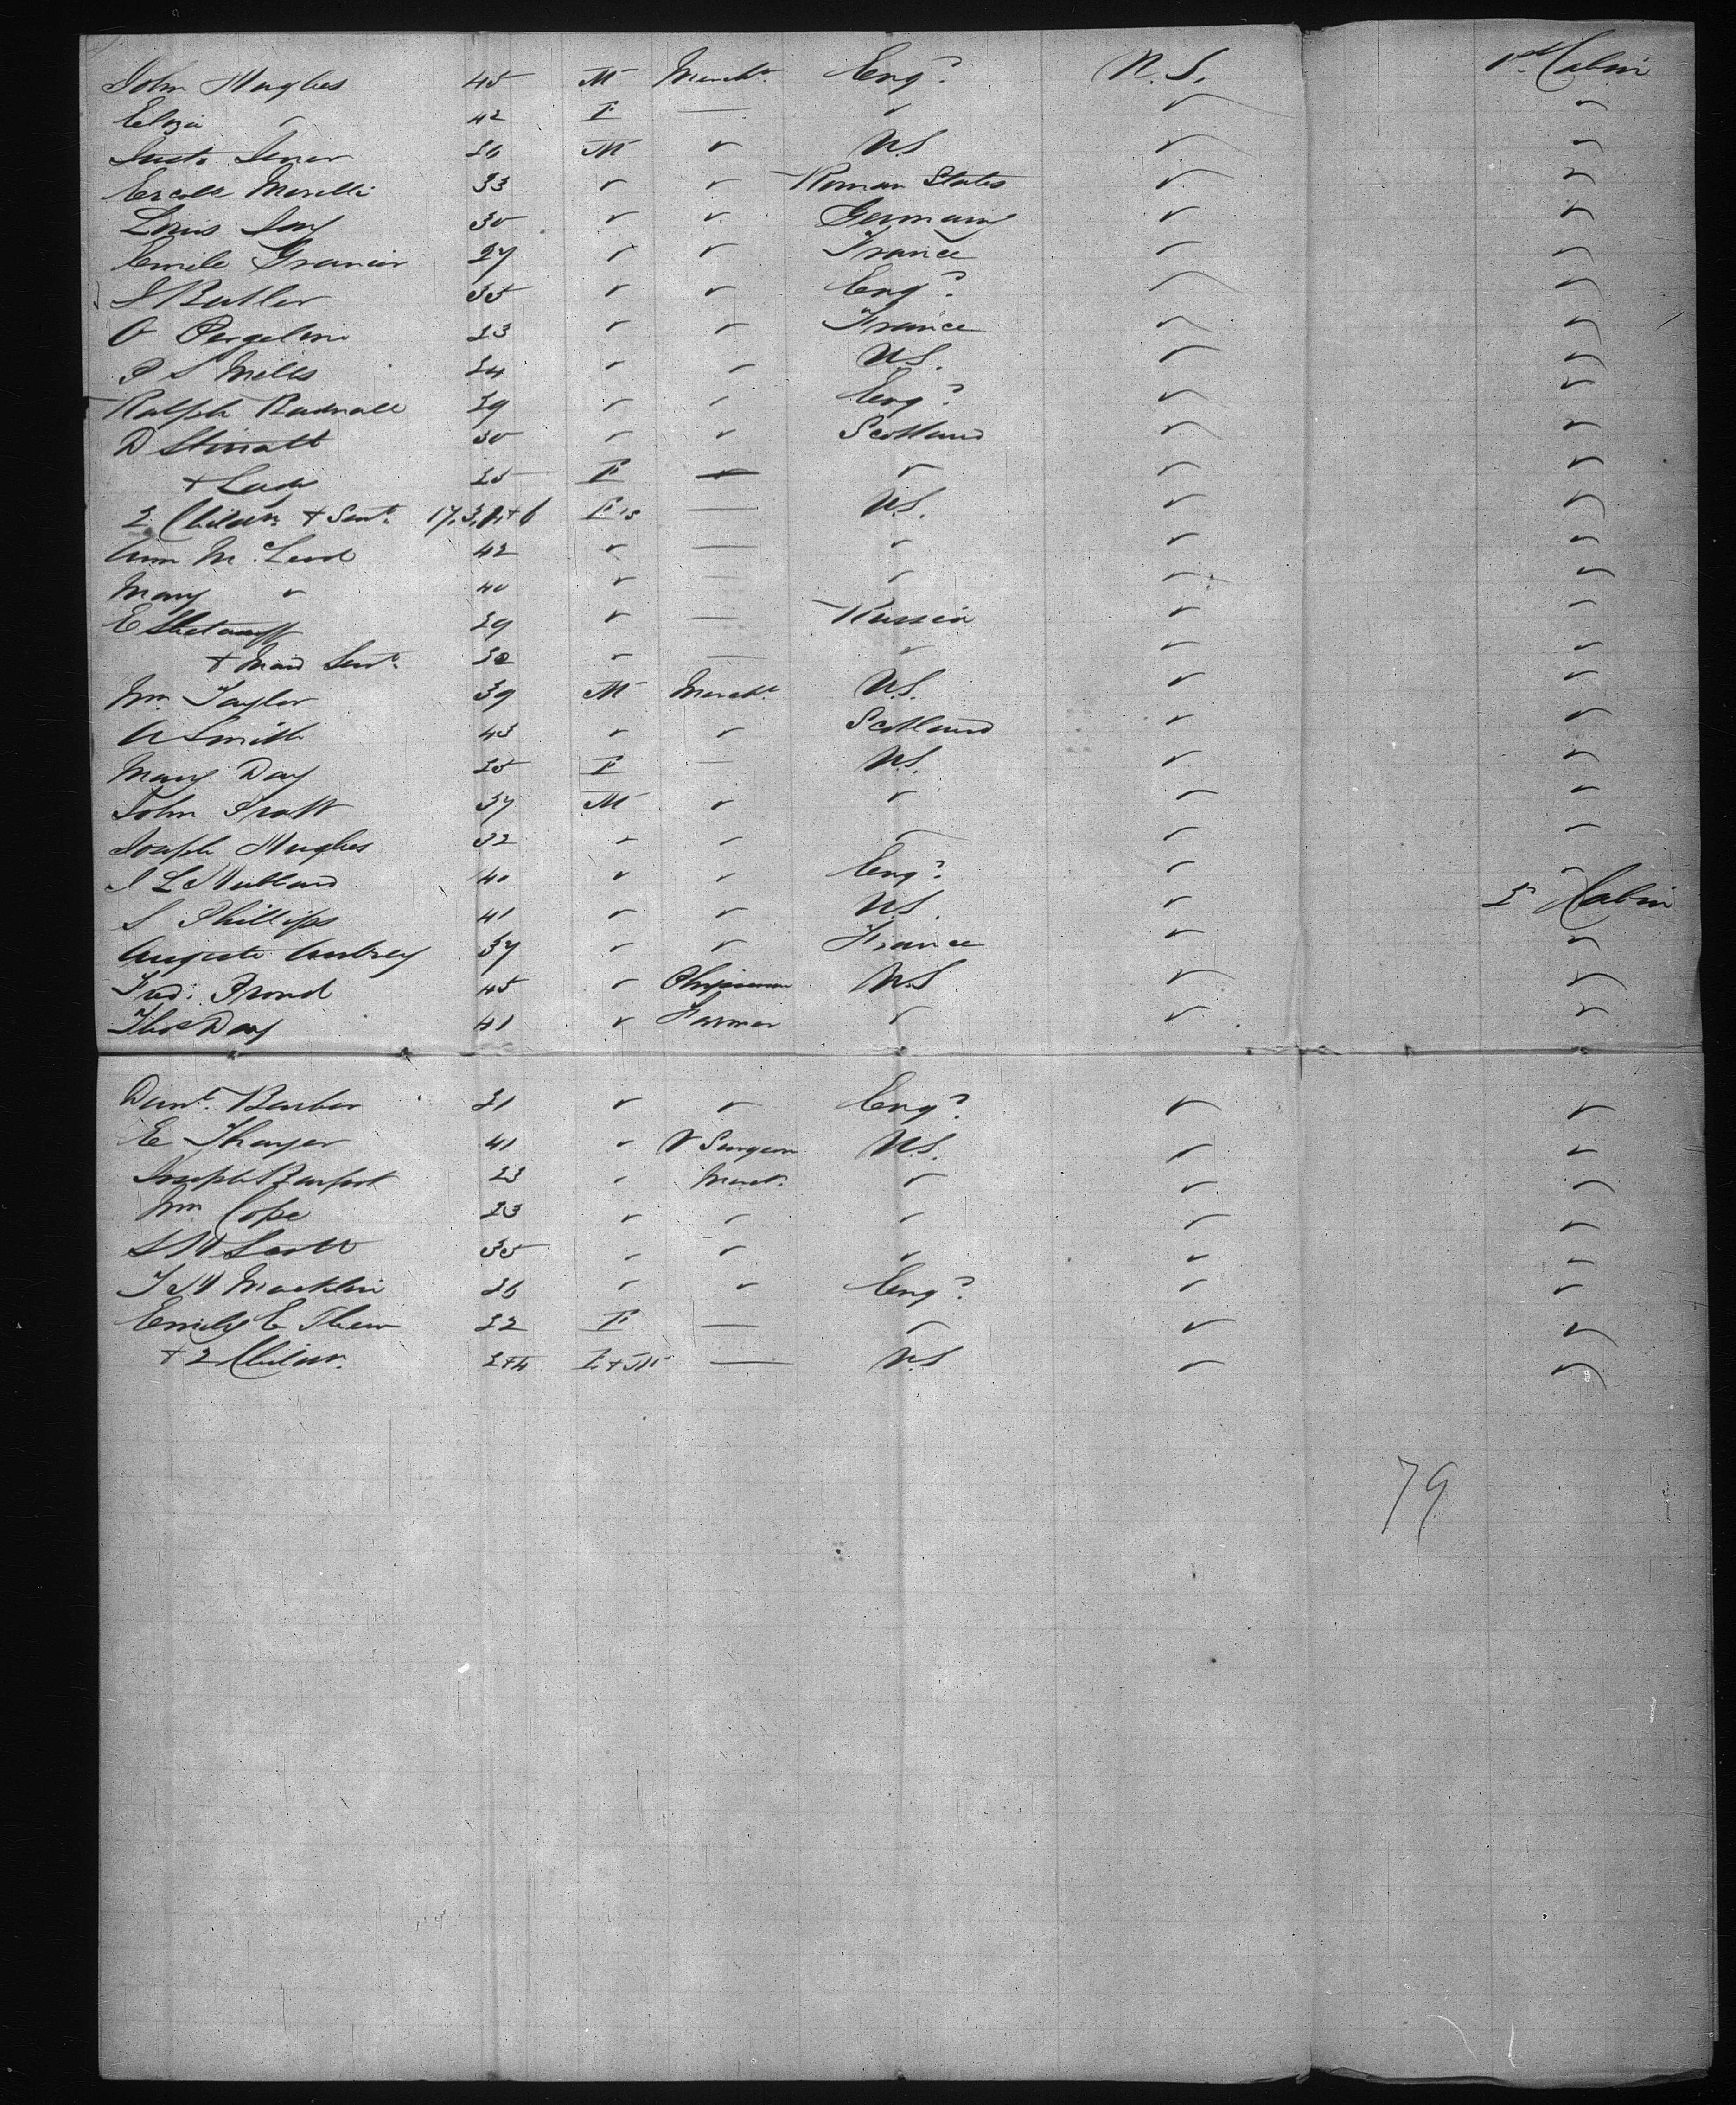 John Hughes 45 M Mercht. Eng? U.S. 1st Cabin
Eliza " 42 F — " " "
Justo Jener 26 M " U.S " "
Ercole Morelli 33 " " Roman States " "
Louis Jay 30 " " Germany " "
Emile Granier 27 " " France " "
J Butler 35 " " Eng? " "
O Pergelini 23 " " France " "
P S Mills 24 " " U.S. " "
Ralph Radnall 29 " " Eng? " "
D Stinatt 30 " " Scotland " "
+ Lady 25 F — " " "
2 Childn + Sevt. F's — U.S. " "
Ann McLeod 42 " — " " "
Mary " 40 " — " " "
E 29 " — Russia " "
+ Maid Sevt. " — " " "
Wm. Taylor 39 M Mercht. U.S. " "
A Smith 43 " " Scotland " "
Mary Day 25 F — U.S. " "
John Pratt 37 M " " " "
Joseph Hughes 32 " " " " "
J L Hubbard 40 " " Eng? " "
S Phillips 41 " " U.S. " 2d Cabin
Auguste Aubrey 37 " " France " "
Fred. Prond 45 " U.S " "
Thos Day 41 " Farmer " " "
Danl. Barber 21 " " Eng? " "
E Thayer 41 " V Surgeon U.S. " "
Joseph 23 " Mercht. " " "
Wm Cope 23 " " " " "
S W Scott 35 " " " " "
T W Macklin 26 " " Eng? " "
Emily E Thew 22 F — " " "
+ 2 Childn. 2+4 F + M — U.S " "
79